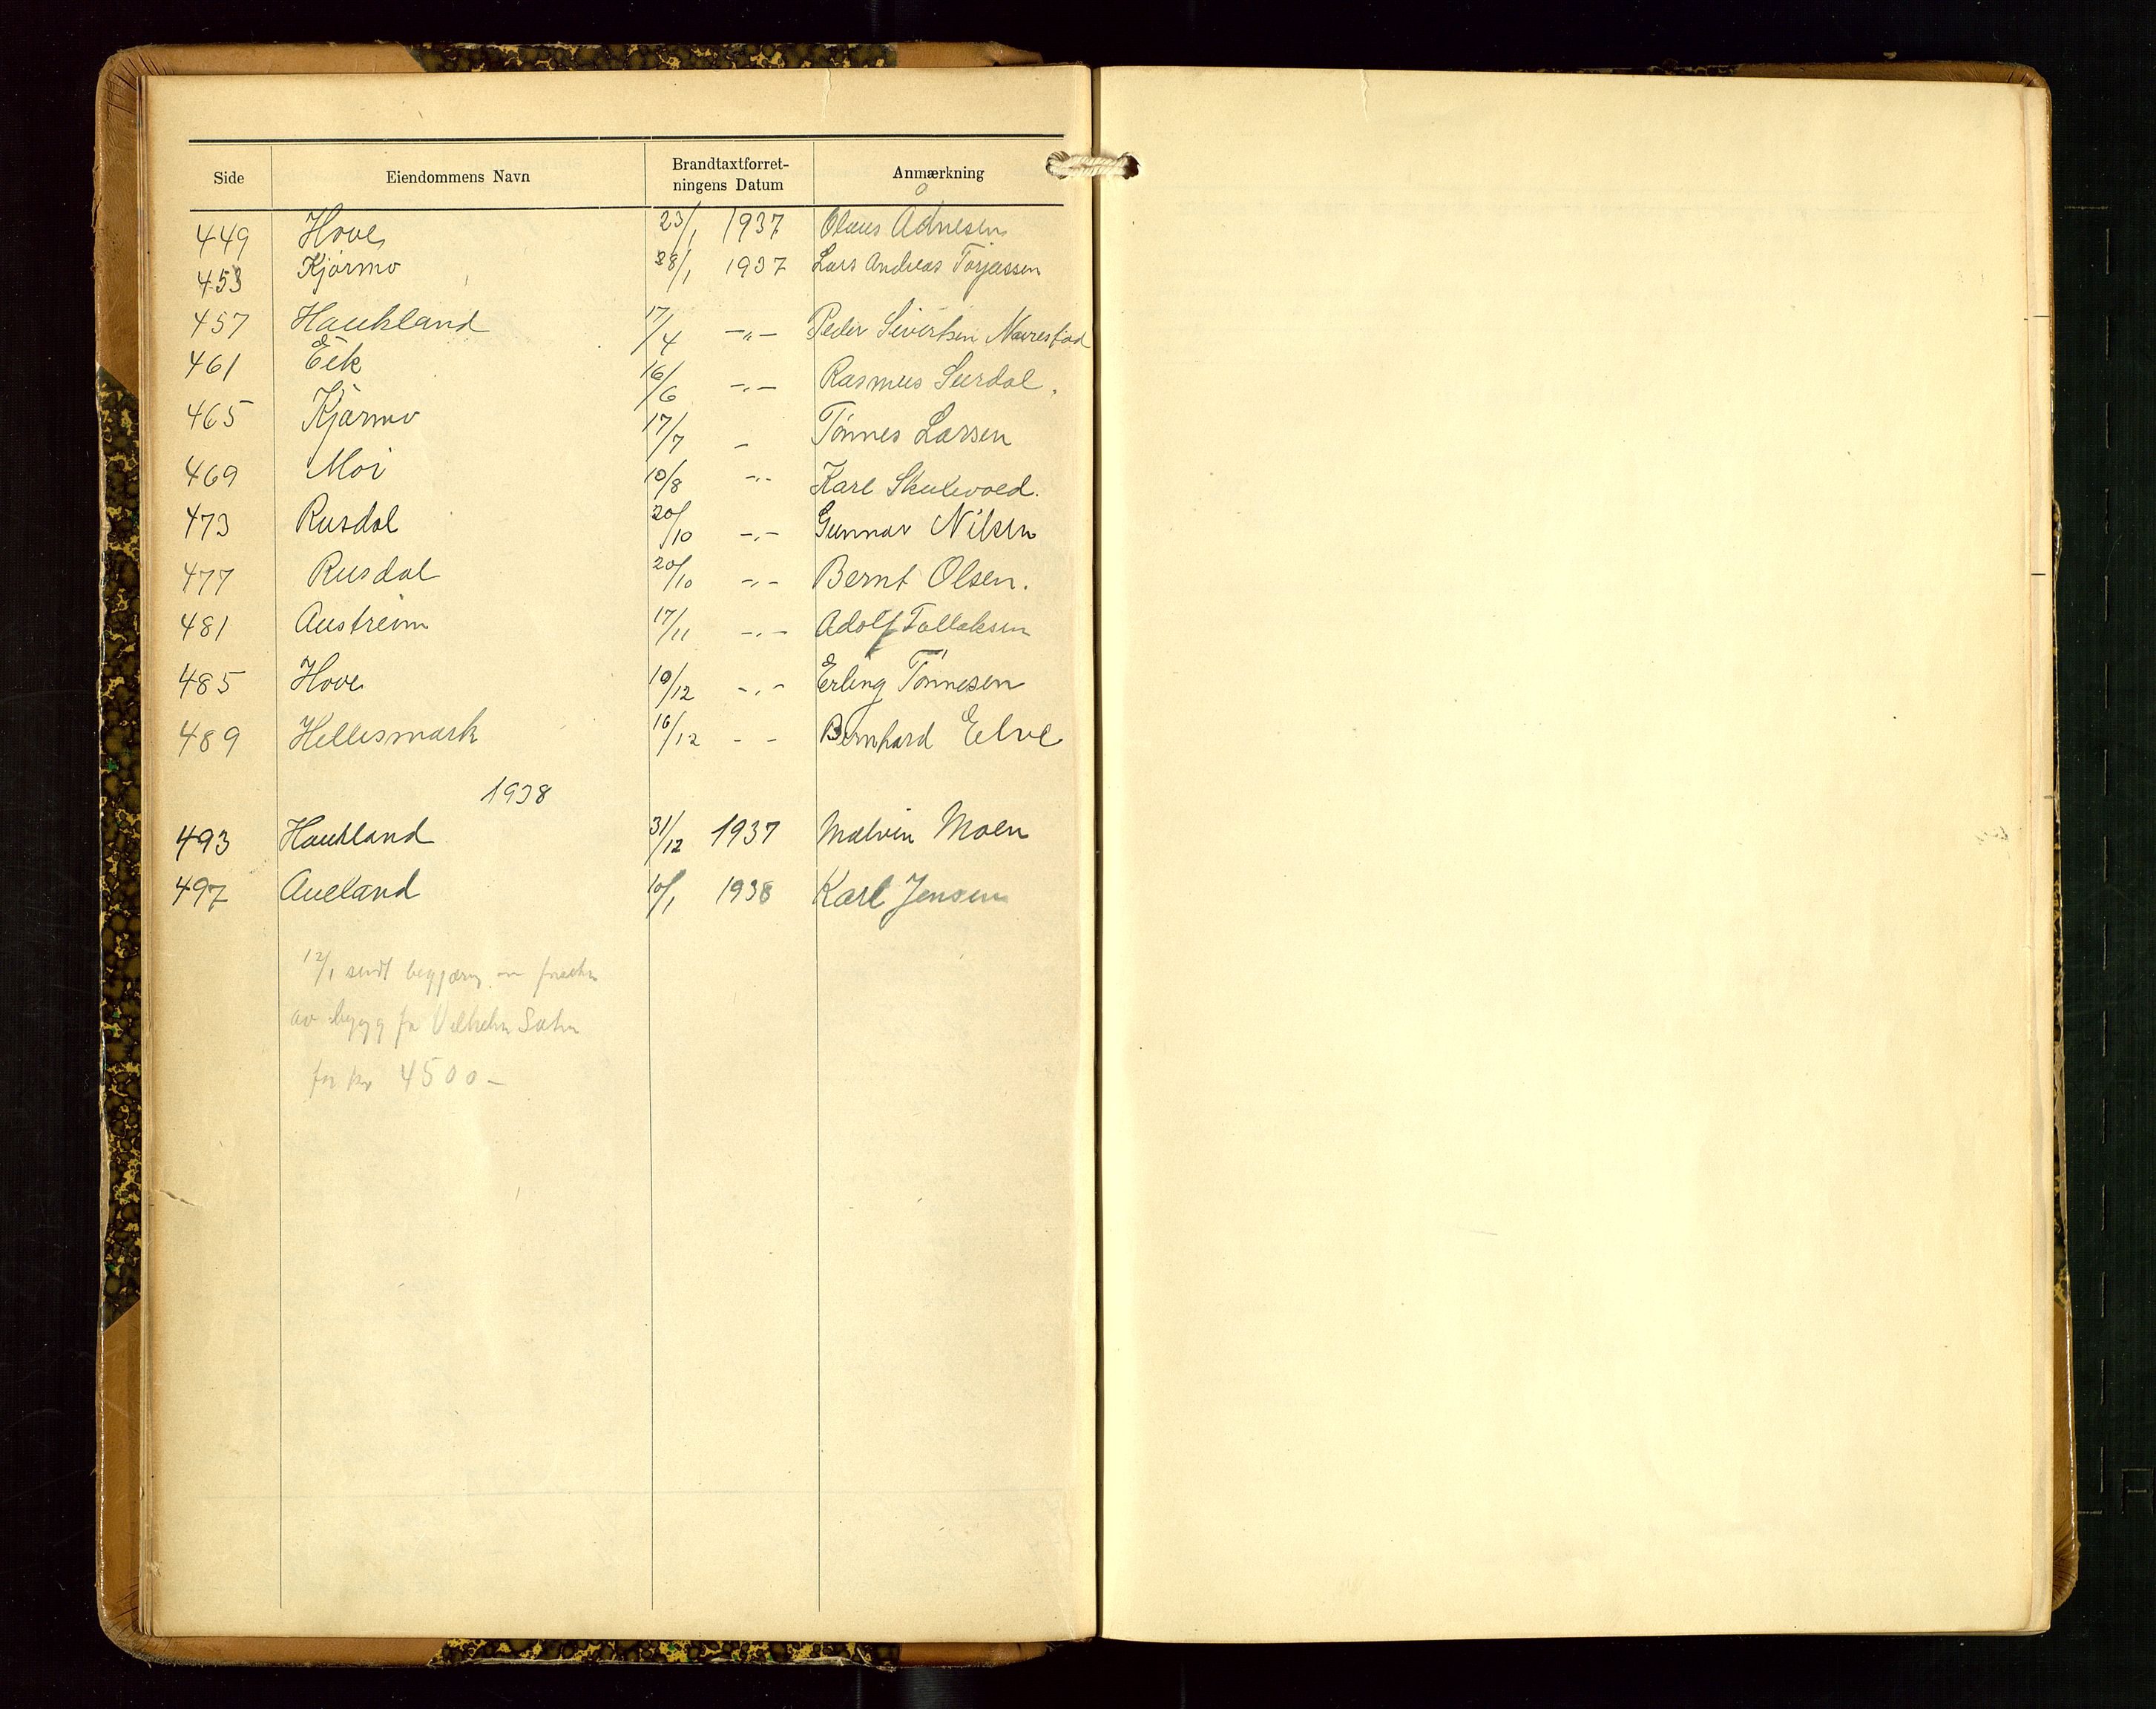 Side Eiendommens Navn Brandtaxtforret-ningens Datum Anmærkning
449 Hove 23/1 1937 Olaus Ådnesen
453 Kjørmo 28/1 1937 Lars Andreas Torjussen
457 Haukland 17/4 -"- Peder Sivertsen Nærestad
461 Eik 16/6 -"- Rasmus Surdal.
465 Kjørmo 17/7 - Tønnes Larsen
469 Moi 10/8 -"- Karl Skulevold.
473 Rusdal 20/10 -"- Gunnar Nilsen
477 Rusdal 20/10 -"- Bernt Olsen.
481 Austreim 17/11 -"- Adolf Tollaksen
485 Hove 10/12 -"- Erling Tønnesen
489 Hellesmark 16/12 - - Bernhard Eelve
1938
493 Haukland 31/12 1937 Malvin Moen
497 Aueland 10/1 1938 Karl Jensen
12/1 sendt begjæring om
av bygg for Vilhelm
for kr 4500-